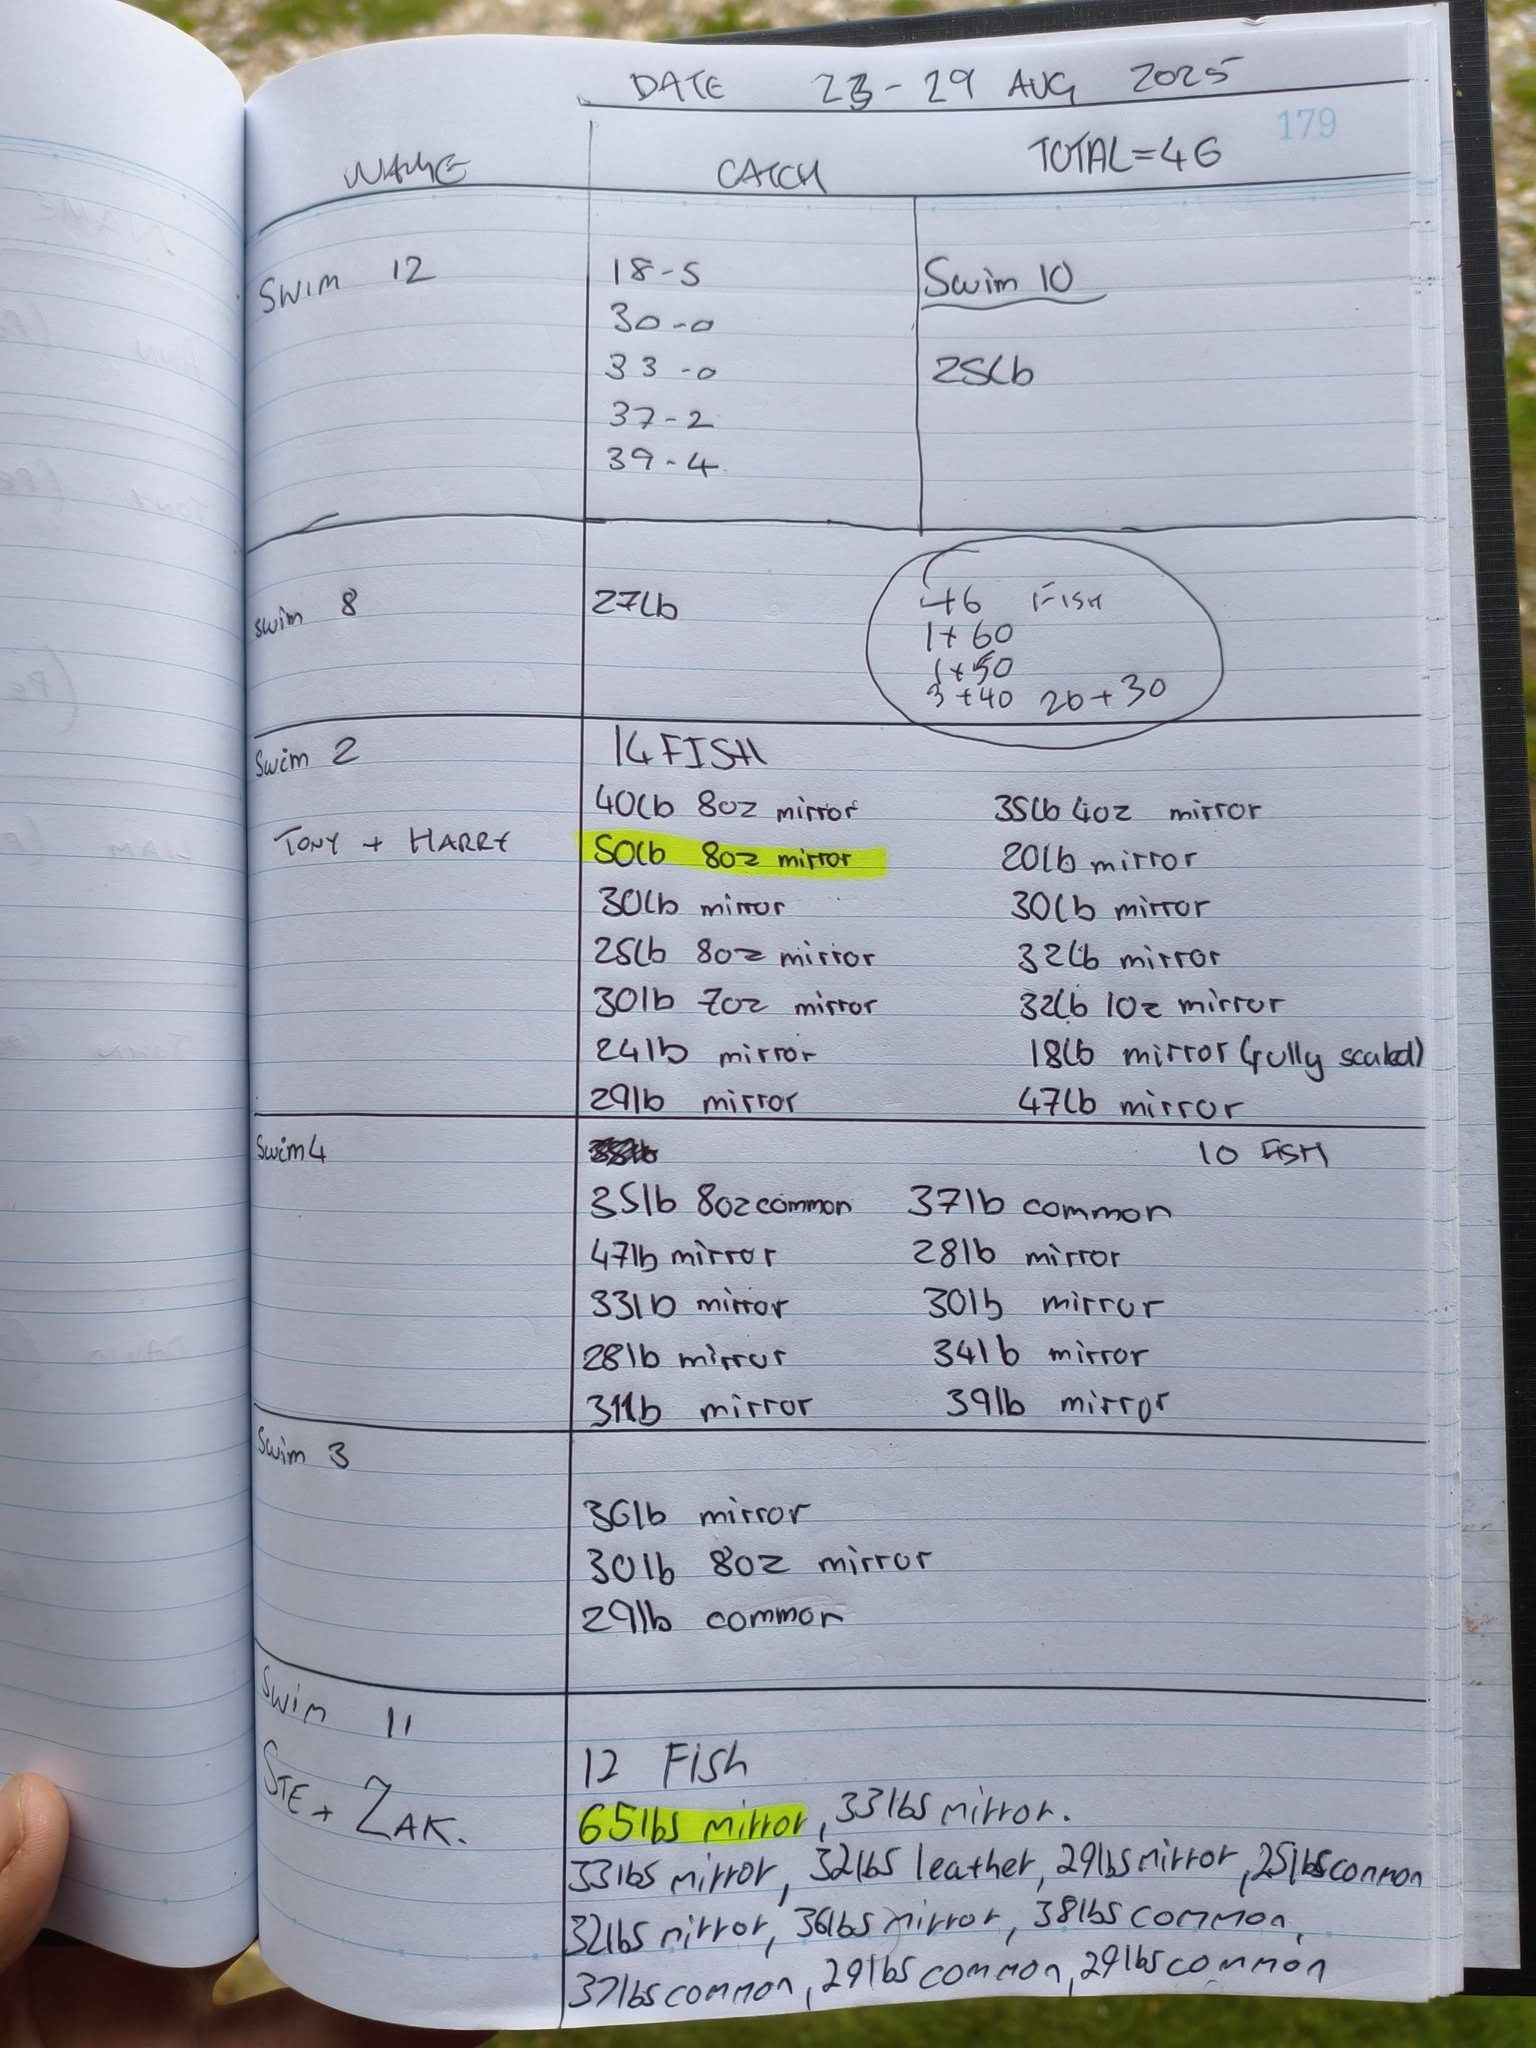 DATE 23-29 AUG 2025
179
NAME CATCH TOTAL=46
Swim 12
18-5
30-0
33-0
37-2
39-4
Swim 10
25lb
swim 8
27lb
46 FISH
1+60
1+50
3+40 20+30
Swim 2
TONY + HARRY
14 FISH
40lb 8oz mirror 35lb 4oz mirror
50lb 8oz mirror 20lb mirror
30lb mirror 30lb mirror
25lb 8oz mirror 32lb mirror
30lb 7oz mirror 32lb 1oz mirror
24lb mirror 18lb mirror (fully scaled)
29lb mirror 47lb mirror
Swim 4
10 FISH
35lb 8oz common 37lb common
47lb mirror 28lb mirror
33lb mirror 30lb mirror
28lb mirror 34lb mirror
31lb mirror 39lb mirror
Swim 3
36lb mirror
30lb 8oz mirror
29lb common
Swim 11
STE + ZAK.
12 Fish
65lbs mirror, 33lbs mirror.
33lbs mirror, 32lbs leather, 29lbs mirror, 25lbs common
32lbs mirror, 36lbs mirror, 38lbs common,
37lbs common, 29lbs common, 29lbs common